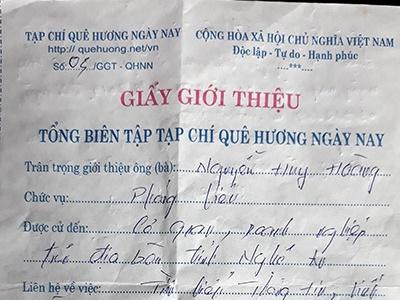 TẠP CHÍ QUÊ HƯƠNG NGÀY NAY
http://quehuong.net/vn
Số:..04../GGT - QHNN
CỘNG HÒA XÃ HỘI CHỦ NGHĨA VIỆT NAM
Độc lập - Tự do - Hạnh phúc
....***....
GIẤY GIỚI THIỆU
TỔNG BIÊN TẬP TẠP CHÍ QUÊ HƯƠNG NGÀY NAY
Trân trọng giới thiệu ông (bà): Nguyễn Huy Hoàng
Chức vụ: Phóng viên
Được cử đến: Cơ quan, doanh nghiệp
trên địa bàn tỉnh Nghệ An
Liên hệ về việc: thông tin, viết